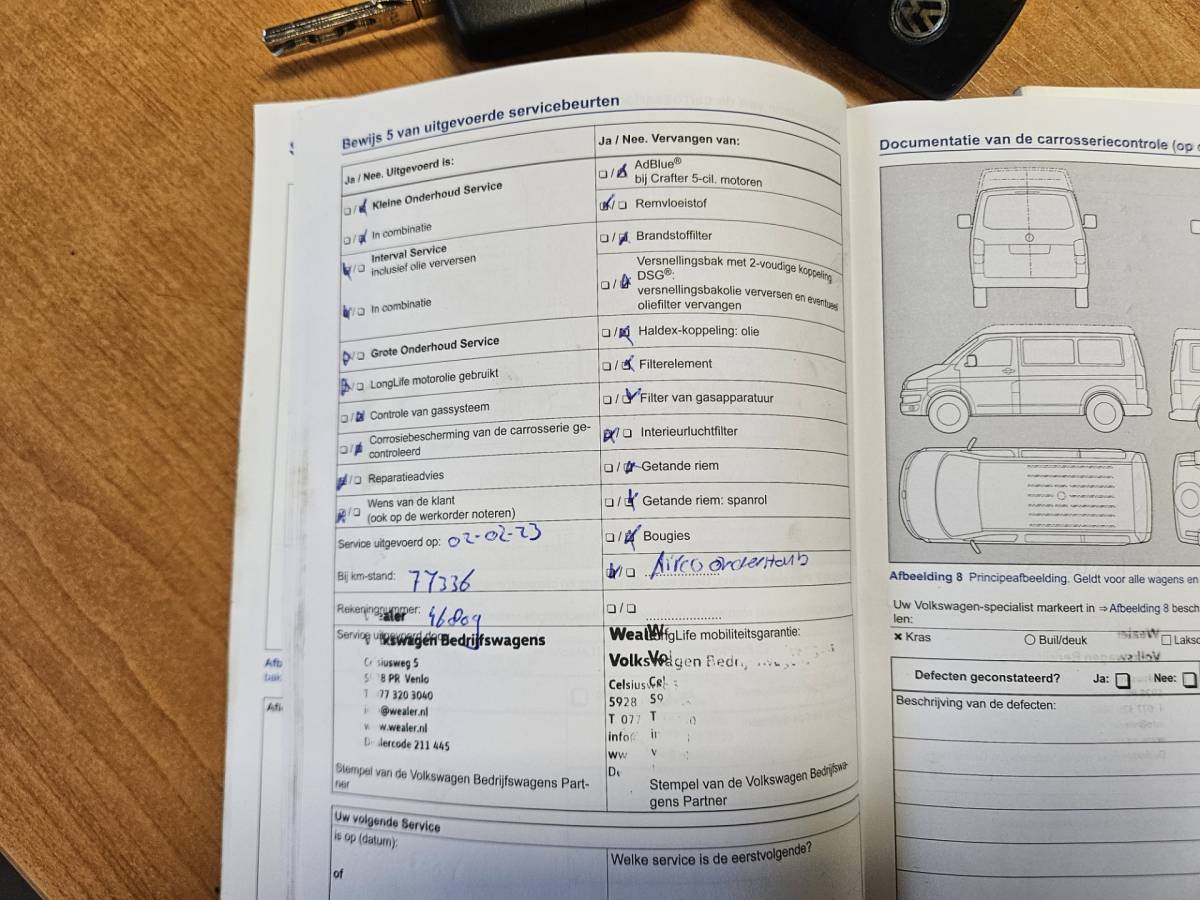 Bewijs 5 van uitgevoerde servicebeurten
Ja / Nee. Uitgevoerd is:
Kleine Onderhoud Service
In combinatie
Interval Service
inclusief olie verversen
In combinatie
Grote Onderhoud Service
LongLife motorolie gebruikt
Controle van gassysteem
Corrosiebescherming van de carrosserie ge-
controleerd
Reparatieadvies
Wens van de klant
(ook op de werkorder noteren)
Service uitgevoerd op: 02-02-23
Bij km-stand: 77336
Rekeningnummer: 46809
Service uitgevoerd door:
kswagen Bedrijfswagens
siusweg 5
8 PR Venlo
77 320 3040
@wealer.nl
w.wealer.nl
lercode 211 445
Stempel van de Volkswagen Bedrijfswagens Part-
ner
Ja / Nee. Vervangen van:
AdBlue®
bij Crafter 5-cil. motoren
Remvloeistof
Brandstoffilter
Versnellingsbak met 2-voudige koppeling
DSG®:
versnellingsbakolie verversen en eventueel
oliefilter vervangen
Haldex-koppeling: olie
Filterelement
Filter van gasapparatuur
Interieurluchtfilter
Getande riem
Getande riem: spanrol
Bougies
Airco onderhoud
LongLife mobiliteitsgarantie:
Volkswagen Bedr
Celsius
5928
T 077
info
Stempel van de Volkswagen Bedrijfswa-
gens Partner
Uw volgende Service
is op (datum):
of
Welke service is de eerstvolgende?
Documentatie van de carrosseriecontrole (op
Afbeelding 8 Principeafbeelding. Geldt voor alle wagens en
Uw Volkswagen-specialist markeert in ⇒ Afbeelding 8 besch
len:
× Kras
Buil/deuk
Laksc
Defecten geconstateerd? Ja: Nee:
Beschrijving van de defecten: